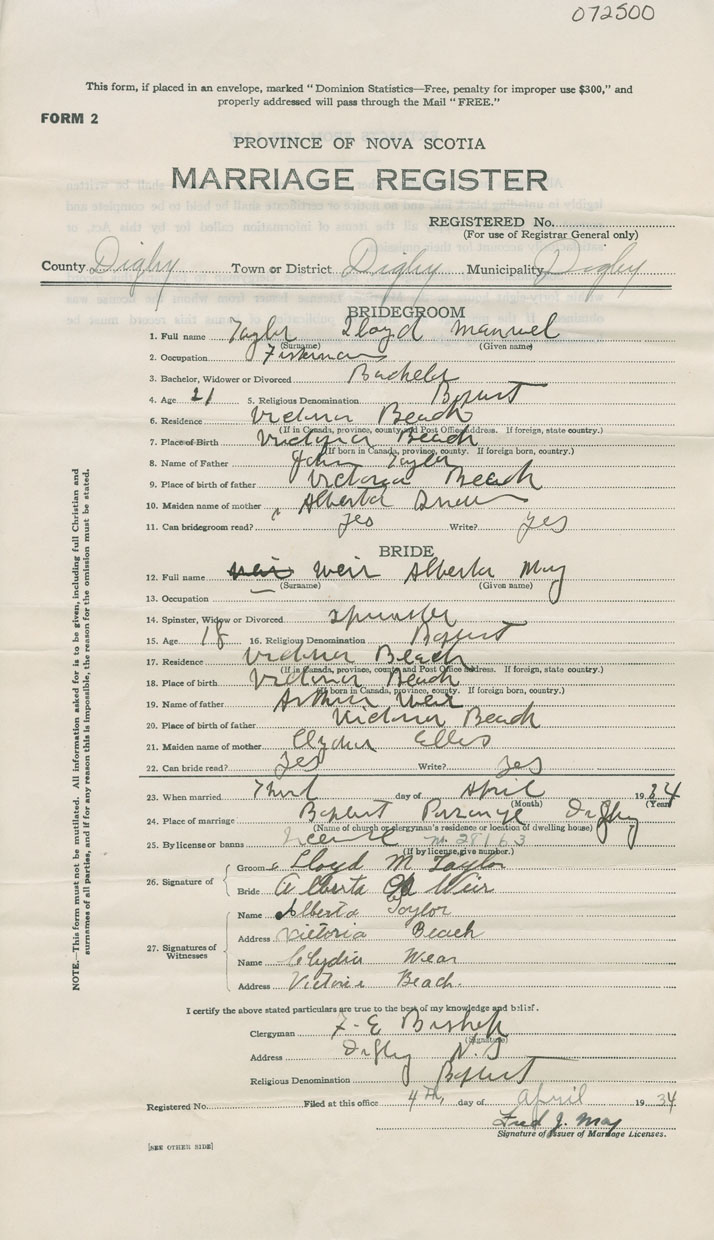 072500
This form, if placed in an envelope, marked "Dominion Statistics—Free, penalty for improper use $300," and
properly addressed will pass through the Mail "FREE."
FORM 2
PROVINCE OF NOVA SCOTIA
MARRIAGE REGISTER
REGISTERED No.
(For use of Registrar General only)
County Digby Town or District Digby Municipality Digby
BRIDEGROOM
1. Full name Taylor Lloyd Manuel
(Surname) (Given name)
2. Occupation Fisherman
3. Bachelor, Widower or Divorced Bachelor
4. Age 21 5. Religious Denomination Baptist
6. Residence Victoria Beach
(If in Canada, province, county and Post Office address. If foreign, state country.)
7. Place of Birth Victoria Beach
(If born in Canada, province, county. If foreign born, country.)
8. Name of Father John Taylor
9. Place of birth of father Victoria Beach
10. Maiden name of mother Alberta
11. Can bridegroom read? Yes Write? Yes
BRIDE
12. Full name Weir Alberta May
(Surname) (Given name)
13. Occupation
14. Spinster, Widow or Divorced Spinster
15. Age 18 16. Religious Denomination Baptist
17. Residence Victoria Beach
(If in Canada, province, county and Post Office address. If foreign, state country.)
18. Place of birth Victoria Beach
(If born in Canada, province, county. If foreign born, country.)
19. Name of father Arthur Weir
20. Place of birth of father Victoria Beach
21. Maiden name of mother Ellis
22. Can bride read? Yes Write? Yes
23. When married Third day of April 1934
(Month) (Year)
24. Place of marriage Baptist Parsonage Digby
(Name of church or clergyman's residence or location of dwelling house)
25. By license or banns License No. 28163
(If by license, give number.)
26. Signature of
Groom Lloyd M Taylor
Bride Alberta Weir
27. Signatures of Witnesses
Name Alberta Taylor
Address Victoria Beach
Name Clydia Wear
Address Victoria Beach.
I certify the above stated particulars are true to the best of my knowledge and belief.
Clergyman F. E. Bishop
(Signature)
Address Digby N.S
Religious Denomination Baptist
Registered No. Filed at this office 4th, day of April 1934
Fred J. May
Signature of Issuer of Marriage Licenses.
[SEE OTHER SIDE]
NOTE.—This form must not be mutilated. All information asked for is to be given, including full Christian and
surnames of all parties, and if for any reason this is impossible, the reason for the omission must be stated.